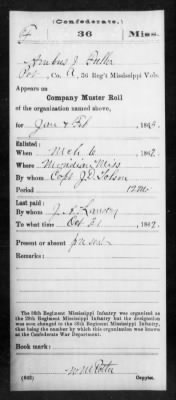 (Confederate.)
36 Miss.
J. Butler
Co. A, 36 Reg't Mississippi Vols.
Appears on
Company Muster Roll
of the organization named above,
for Jan & Feb, 186
Enlisted:
When Mch 6, 1862
Where Meridian Miss
By whom Capt J.D.
Period
Last paid:
By whom J. A.
To what time Oct 31, 1862
Present or absent
Remarks:
The 36th Regiment Mississippi Infantry was organized as
the 29th Regiment Mississippi Infantry but the designation
was soon changed to the 36th Regiment Mississippi Infantry,
that being the number by which this organization was known
at the Confederate War Department.
Book mark:
Copyist.